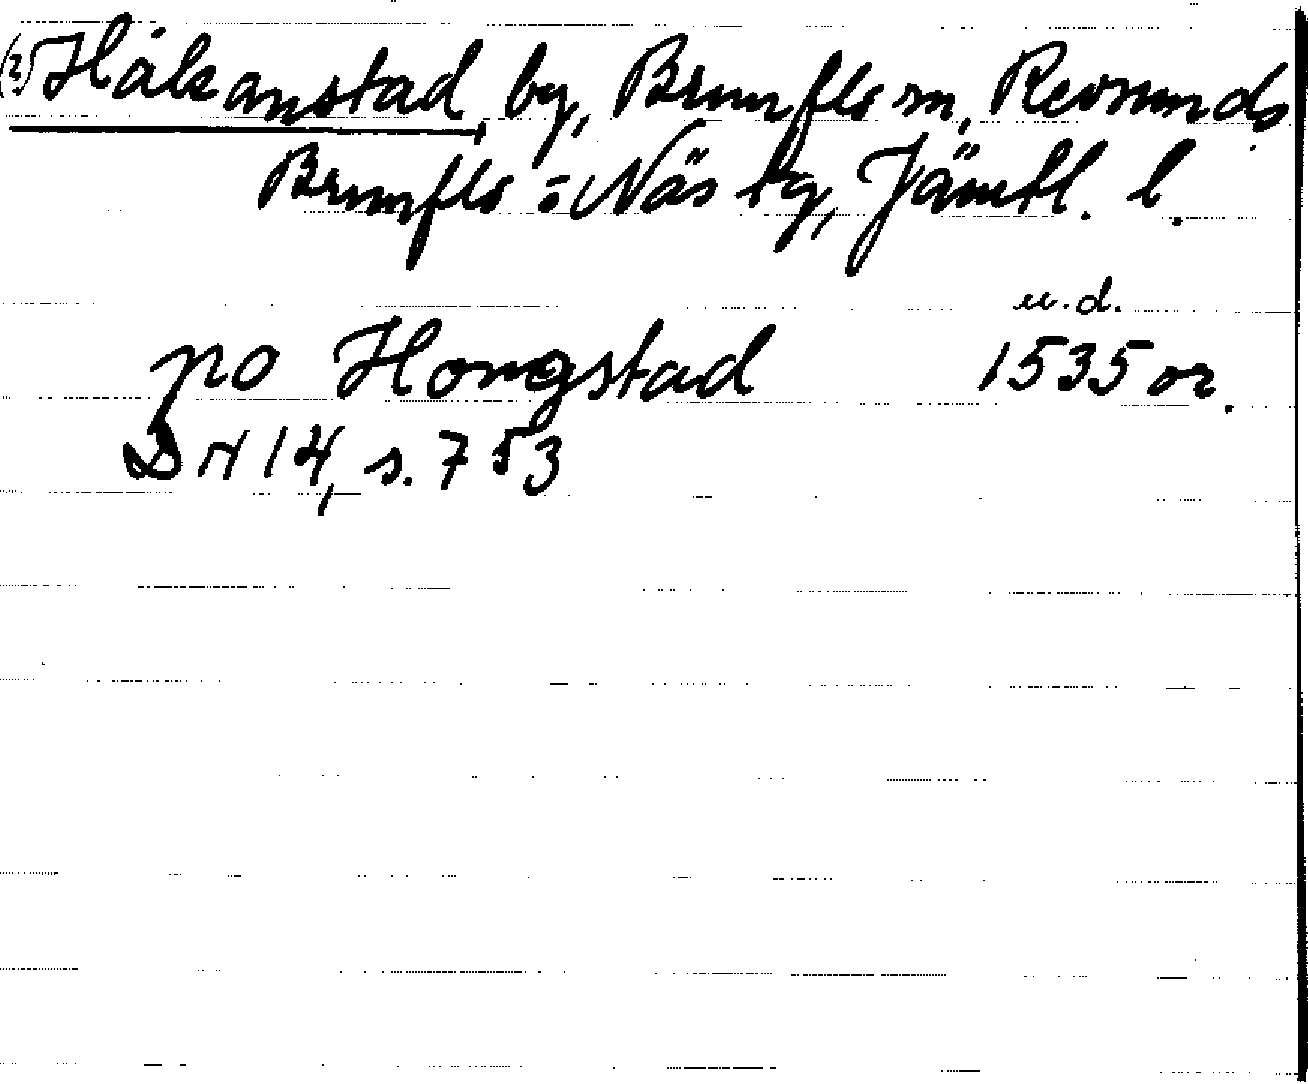 (2) Håkanstad, by, Brunflo sn, Revsunds
Brunflo o Näs tg, Jämtl. l.
u.d.
po Hongstad 1535 or.
DN 14, s. 753